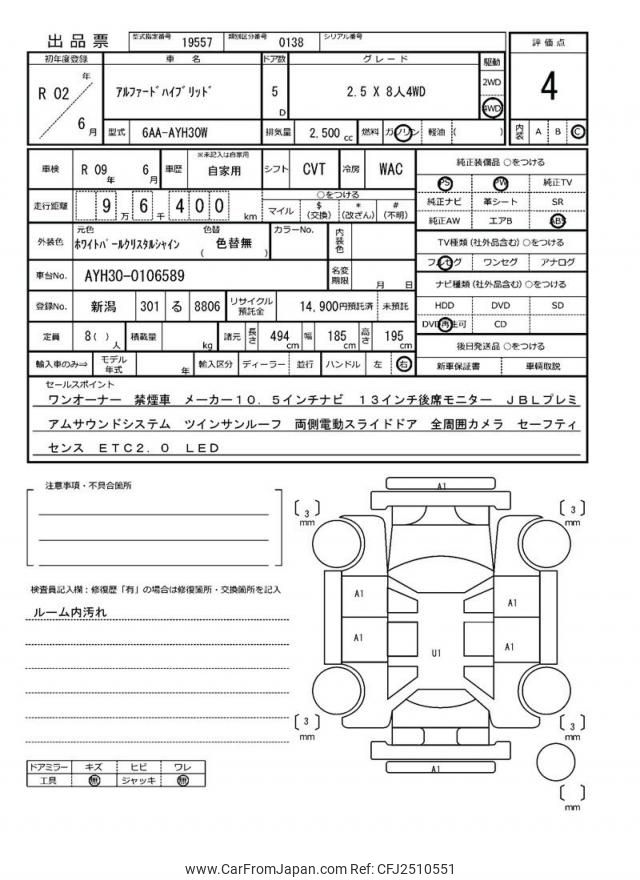 出品票 型式指定番号 19557 類別区分番号 0138 シリアル番号
初年度登録 車 名 ドア数 グレード 駆動 評価点
R 02 年 6 月 アルファードハイブリッド 5 D 2.5 X 8人4WD 2WD 4WD 4
型式 6AA-AYH30W 排気量 2,500 cc 燃料 ガソリン 軽油 ( ) 内装 A B C
車検 R 09 年 6 月 車歴 ※未記入は自家用 自家用 シフト CVT 冷房 WAC 純正装備品 ○をつける
PS PW 純正TV
走行距離 9 万 6 千 4 0 0 km ○をつける
マイル $ (交換) * (改ざん) # (不明) 純正ナビ 革シート SR
純正AW エアB ABS
外装色 元色 ホワイトパールクリスタルシャイン 色替 ( 色替無 ) カラーNo. 内装色 TV種類 (社外品含む) ○をつける
フルセグ ワンセグ アナログ
車台No. AYH30-0106589 名変期限 月 日 ナビ種類 (社外品含む) ○をつける
登録No. 新潟 301 る 8806 リサイクル預託金 14,900円預託済 未預託 HDD DVD SD
DVD再生可 CD
定員 8( ) 人 積載量 kg 諸元 長さ 494 cm 幅 185 cm 高さ 195 cm 後日発送品 ○をつける
輸入車のみ⇒ モデル年式 年 輸入区分 ディーラー 並行 ハンドル 左 右 新車保証書 車輌取説
セールスポイント
ワンオーナー 禁煙車 メーカー10.5インチナビ 13インチ後席モニター JBLプレミ
アムサウンドシステム ツインサンルーフ 両側電動スライドドア 全周囲カメラ セーフティ
センス ETC2.0 LED
注意事項・不具合箇所
検査員記入欄：修復歴「有」の場合は修復箇所・交換箇所を記入
ルーム内汚れ
A1
3 mm
3 mm
A1
A1
A1
A1
U1
3 mm
3 mm
A1
mm
ドアミラー キズ ヒビ ワレ
工具 無 ジャッキ 無
www.CarFromJapan.com Ref: CFJ2510551